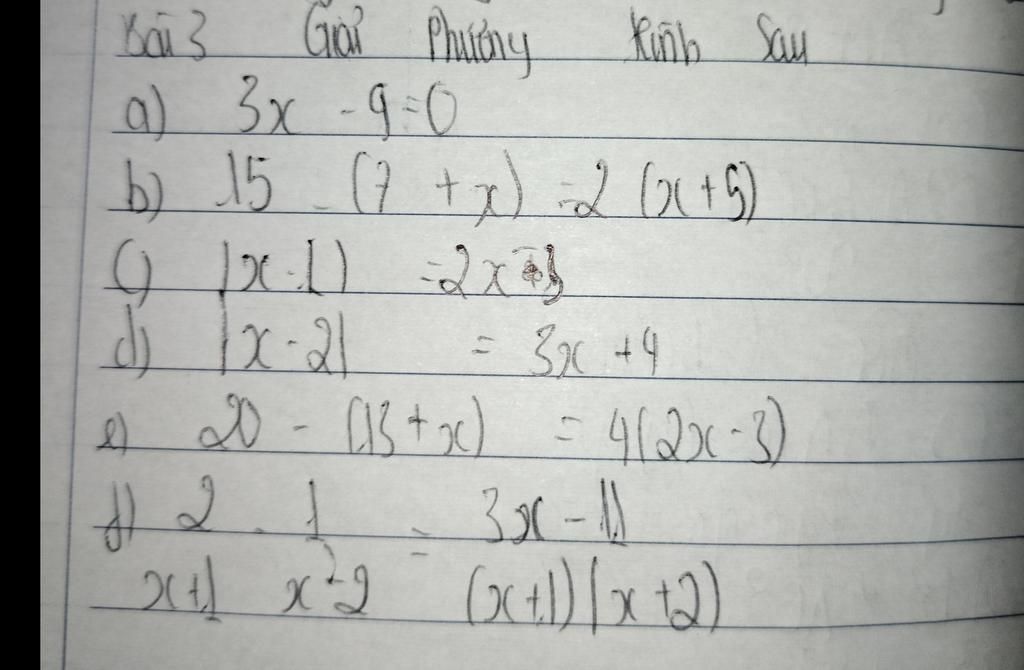 Bài 3 Giải Phương trình Sau
a) 3x - 9 = 0
b) 15 - (7 + x) = 2 (x + 5)
c) |x - 1| = 2x
d) |x - 2| = 3x + 4
e) 20 - (13 + x) = 4(2x - 3)
f) 2 - 1 = 3x - 11
x+1 x - 2 (x+1)(x+2)